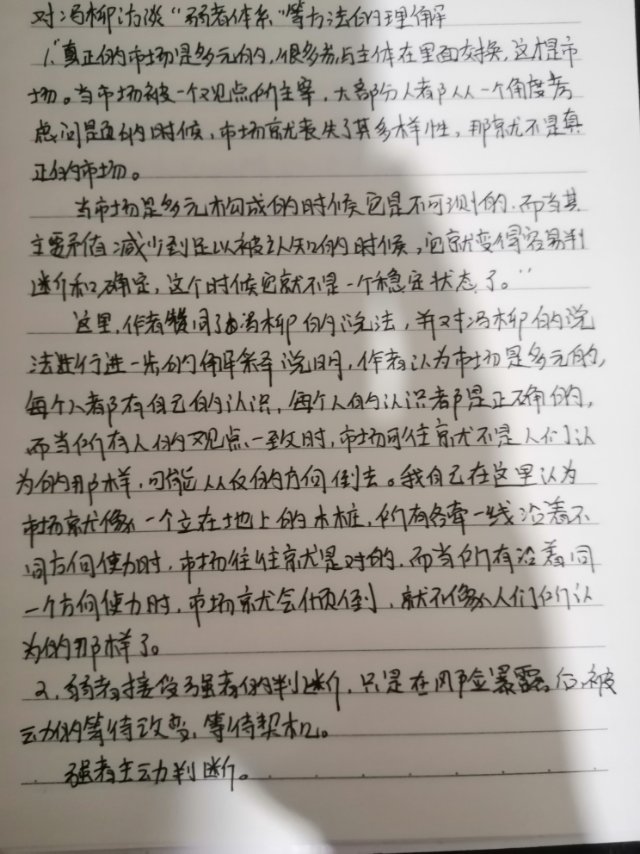 对冯柳访谈“弱者体系”等方法的理解
1、“真正的市场是多元的，很多参与主体在里面交换，这才是市
场。当市场被一个观点所主宰，大部分人都从一个角度考
虑问题的时候，市场就丧失了其多样性，那就不是真
正的市场。
当市场是多元构成的时候它是不可测的，而当其
主要矛盾减少到足以被认知的时候，它就变得容易判
断和确定，这个时候它就不是一个稳定状态了。”
这里，作者赞同了冯柳的说法，并对冯柳的说
法进行进一步的解释说明，作者认为市场是多元的，
每个人都有自己的认识，每个人的认识都是正确的，
而当所有人的观点一致时，市场可往就不是人们认
为的那样，可能从反的方向倒去。我自己在这里认为
市场就像一个立在地上的木桩，所有各牵一线沿着不
同方向使力时，市场往往就是对的，而当所有沿着同
一个方向使力时，市场就会倾倒，就不像人们所认
为的那样了。
2、弱者接受了强者的判断，只是在风险暴露后，被
动的等待改变，等待契机。
强者主动判断。